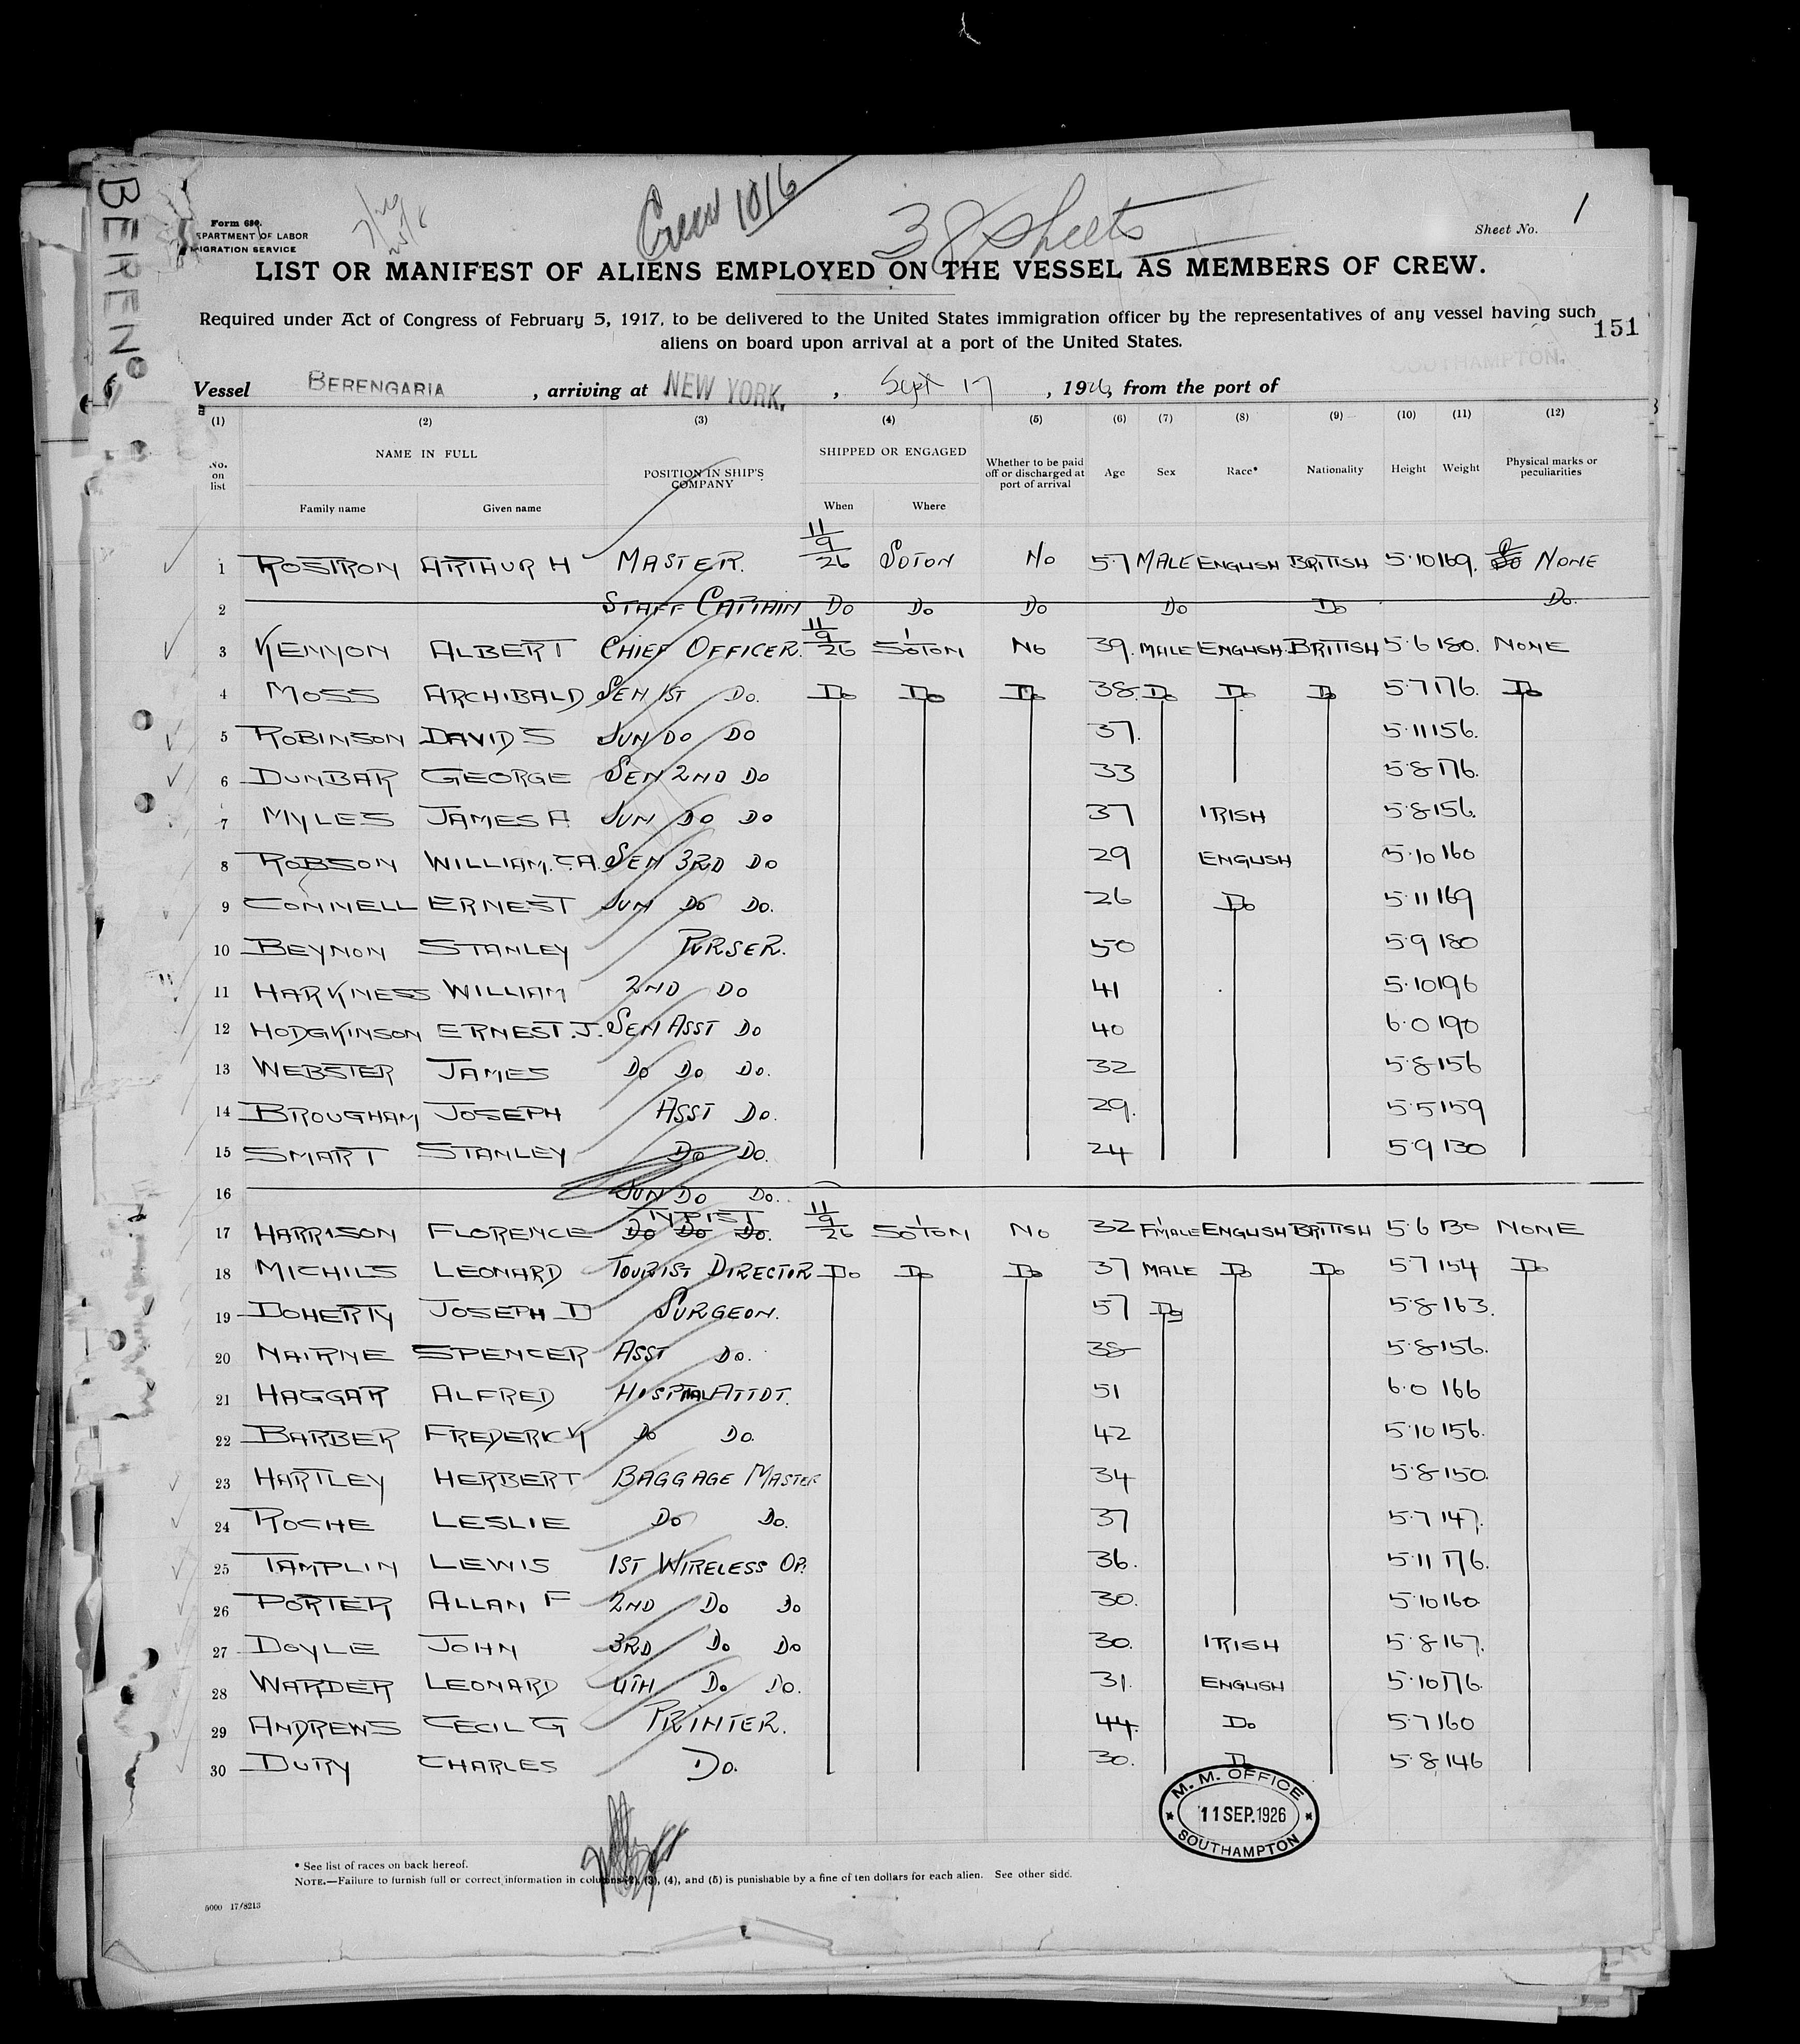 BERENG
Crew 1016
38 Sheets
Form 680.
DEPARTMENT OF LABOR
IMMIGRATION SERVICE
Sheet No. 1
LIST OR MANIFEST OF ALIENS EMPLOYED ON THE VESSEL AS MEMBERS OF CREW.
Required under Act of Congress of February 5, 1917, to be delivered to the United States immigration officer by the representatives of any vessel having such
aliens on board upon arrival at a port of the United States.
151
SOUTHAMPTON.
Vessel BERENGARIA, arriving at NEW YORK, Sept 17, 1926, from the port of
(1) (2) (3) (4) (5) (6) (7) (8) (9) (10) (11) (12)
No. on list NAME IN FULL POSITION IN SHIP'S COMPANY SHIPPED OR ENGAGED Whether to be paid off or discharged at port of arrival Age Sex Race* Nationality Height Weight Physical marks or peculiarities
Family name Given name When Where
1 ROSTRON ARTHUR H MASTER. 11/9/26 SOTON NO 57 MALE ENGLISH BRITISH 5·10 169. NONE
2 STAFF CAPTAIN DO DO DO DO DO DO.
3 KENYON ALBERT CHIEF OFFICER. 11/9/26 SO'TON NO 39. MALE ENGLISH BRITISH 5·6 180. NONE
4 MOSS ARCHIBALD SEN 1ST DO. DO DO DO 38. DO DO DO 5·7 176. DO
5 ROBINSON DAVID S JUN DO DO 37. 5·11 156.
6 DUNBAR GEORGE SEN 2ND DO 33 5·8 176.
7 MYLES JAMES A JUN DO DO 37 IRISH 5·8 156.
8 ROBSON WILLIAM. C.A. SEN 3RD DO 29 ENGLISH 5·10 160
9 CONNELL ERNEST JUN DO DO. 26 DO 5·11 169
10 BEYNON STANLEY PURSER. 50 5·9 180
11 HARKNESS WILLIAM 2ND DO 41 5·10 196
12 HODGKINSON ERNEST. J. SEN ASST DO 40 6·0 190
13 WEBSTER JAMES DO DO DO. 32 5·8 156
14 BROUGHAM JOSEPH ASST DO. 29. 5·5 159
15 SMART STANLEY DO DO. 24 5·9 130
16 JUN DO DO.
17 HARRISON FLORENCE TYPIST DO DO DO. 11/9/26 SO'TON NO 32 F'MALE ENGLISH BRITISH 5·6 130 NONE
18 MICHILS LEONARD TOURIST DIRECTOR DO DO DO 37 MALE DO DO 5·7 154 DO
19 DOHERTY JOSEPH D SURGEON. 57 DO 5·8 163.
20 NAIRNE SPENCER ASST DO. 38 5·8 156.
21 HAGGAR ALFRED HOSPITAL ATTDT. 51 6·0 166
22 BARBER FREDERICK DO DO. 42 5·10 156.
23 HARTLEY HERBERT BAGGAGE MASTER 34 5·8 150.
24 ROCHE LESLIE DO DO. 37 5·7 147.
25 TAMPLIN LEWIS 1ST WIRELESS OP. 36. 5·11 176.
26 PORTER ALLAN F 2ND DO DO 30. 5·10 160
27 DOYLE JOHN 3RD DO DO 30. IRISH 5·8 167.
28 WARDER LEONARD 4TH DO DO. 31. ENGLISH 5·10 176.
29 ANDREWS CECIL G PRINTER. 44. DO 5·7 160
30 DURY CHARLES DO. 30. DO 5·8 146
M. M. OFFICE
11 SEP. 1926
SOUTHAMPTON
* See list of races on back hereof.
NOTE.—Failure to furnish full or correct information in columns (2), (3), (4), and (5) is punishable by a fine of ten dollars for each alien. See other side.
5000 17/8213